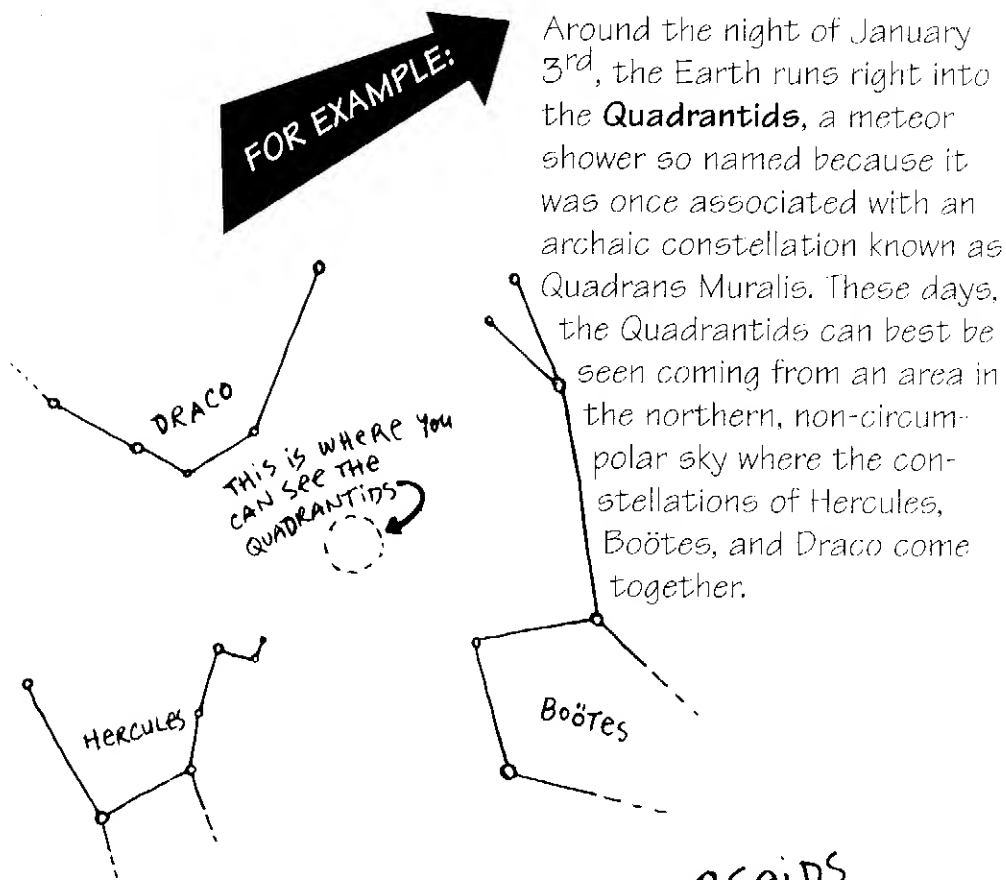 FOR EXAMPLE:
Around the night of January
3rd, the Earth runs right into
the Quadrantids, a meteor
shower so named because it
was once associated with an
archaic constellation known as
Quadrans Muralis. These days,
the Quadrantids can best be
seen coming from an area in
the northern, non-circum-
polar sky where the con-
stellations of Hercules,
Boötes, and Draco come
together.
DRACO
THIS IS WHERE YOU
CAN SEE THE
QUADRANTIDS
HERCULES
BOÖTES